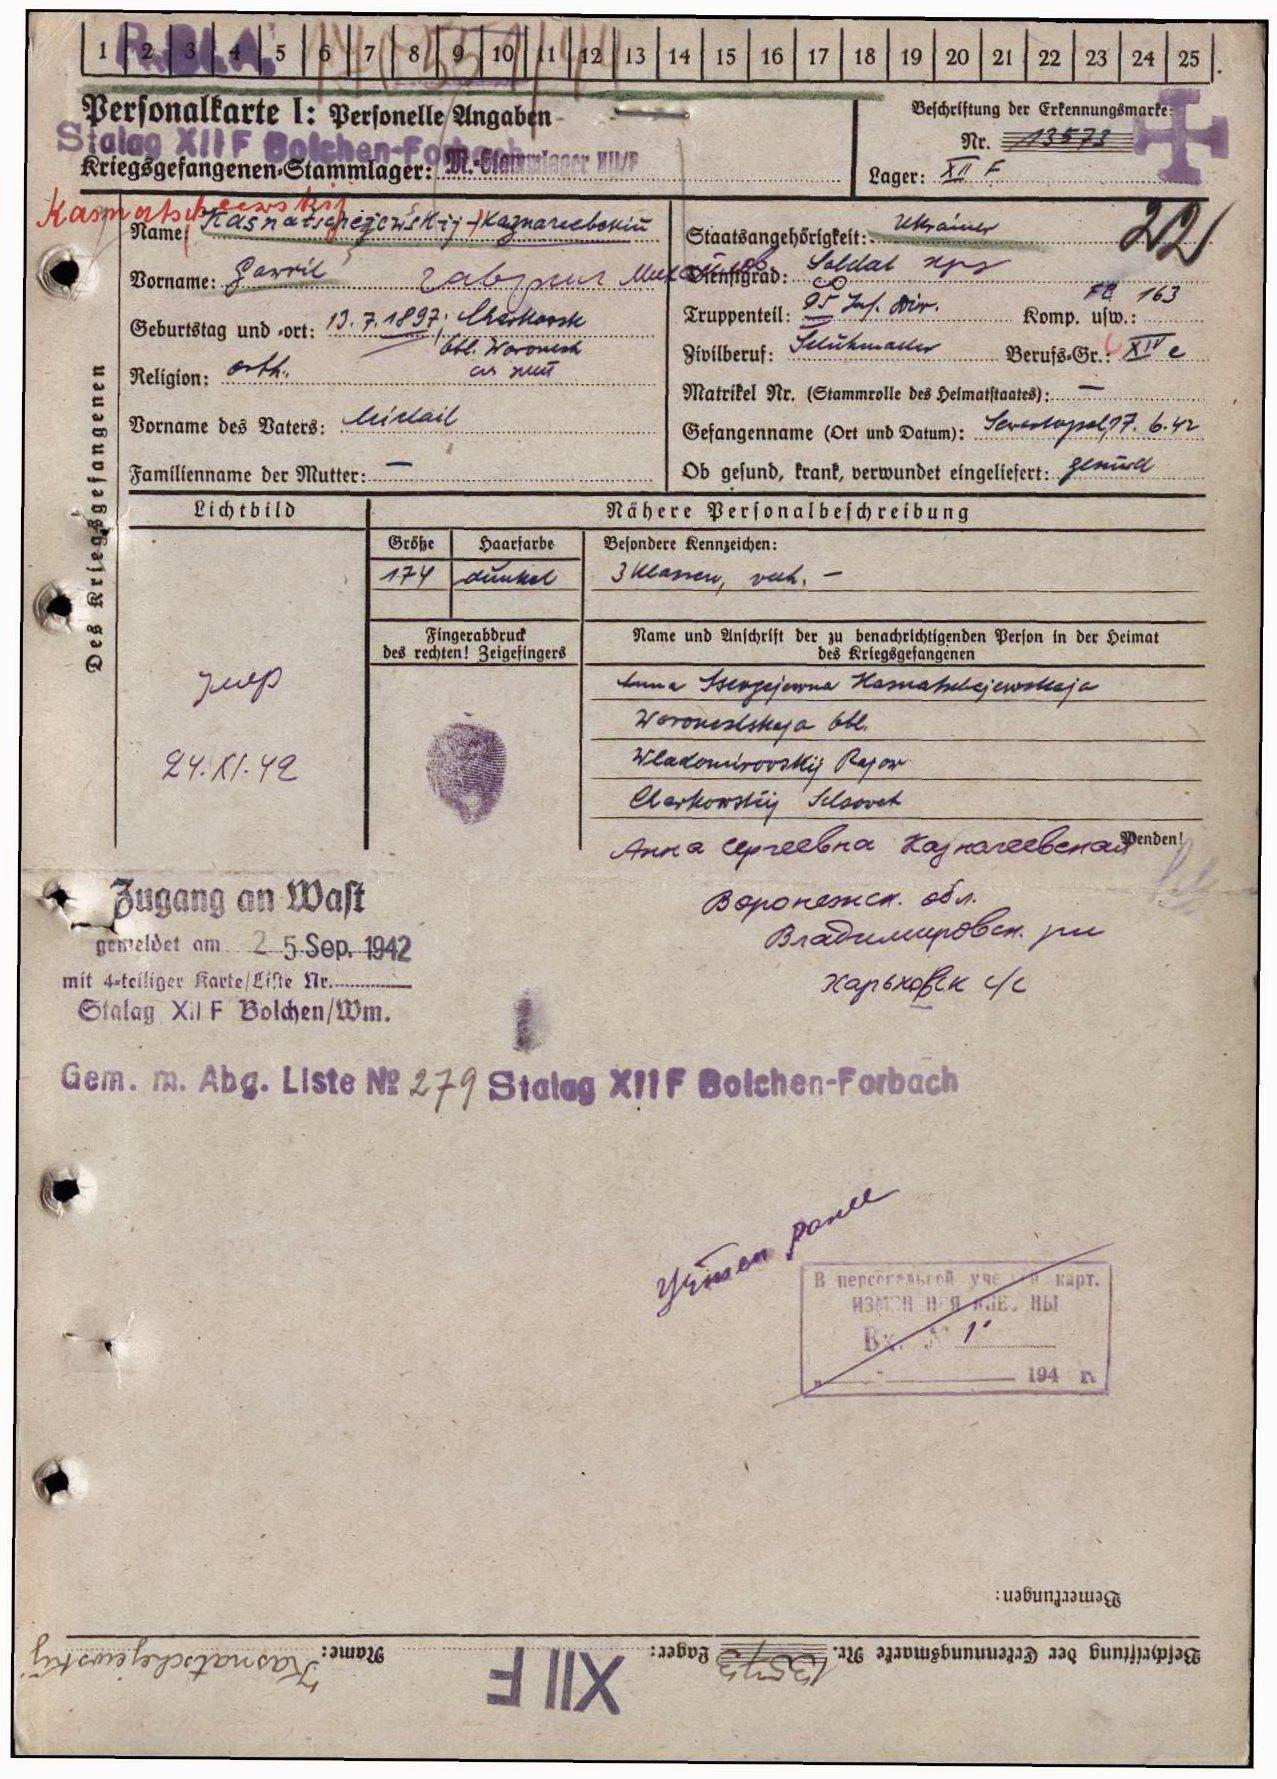 1 2 3 4 5 6 7 8 9 10 11 12 13 14 15 16 17 18 19 20 21 22 23 24 25
Personalkarte I: Personelle Angaben
Beschriftung der Erkennungsmarke:
Stalag XII F Bolchen-Forbach
Nr. 13573
Kriegsgefangenen-Stammlager: M.-Stammlager XII/F
Lager: XII F
22
Des Kriegsgefangenen
Name: Kasnatschejewskij Казначеевский
Staatsangehörigkeit: Ukrainer
Vorname: Gawril Гавриил
Dienstgrad: Soldat
Geburtstag und -ort: 13.7.1897, Charkowsk
obl. Woronesh
Truppenteil: 95 Inf. Div. Komp. usw.: 163
Zivilberuf: Schuhmacher Berufs-Gr.: XIV c
Religion: orth.
Matrikel Nr. (Stammrolle des Heimatstaates): —
Vorname des Vaters: Michail
Gefangenname (Ort und Datum): Sewastopol, 17.6.42
Familienname der Mutter: —
Ob gesund, krank, verwundet eingeliefert: gesund
Lichtbild
Nähere Personalbeschreibung
Größe Haarfarbe Besondere Kennzeichen:
174 dunkel 3 Klassen, verh. —
Fingerabdruck
des rechten! Zeigefingers
Name und Anschrift der zu benachrichtigenden Person in der Heimat
des Kriegsgefangenen
умер
24.XI.42
Anna Ssergejewna Kasnatschejewskaja
Woroneshskaja obl.
Wladomirovskij Rajon
Charkowskij Selsovet
Wenden!
Анна Сергеевна Казначеевская
Воронежск. обл.
Владимировск. рн
Харьковск с/с
Zugang an Wast
gemeldet am 25 Sep. 1942
mit 4-teiliger Karte/Liste Nr.
Stalag XII F Bolchen/Wm.
Gem. m. Abg. Liste № 279 Stalag XII F Bolchen-Forbach
Учтен ранее
В персональной учетной карт.
ИЗМЕНЕНИЯ ВНЕСЕНЫ
Вх. №
194 г.
Bemerkungen:
Beschriftung der Erkennungsmarke Nr. 13573 Lager: XII F Name: Kasnatschejewskij